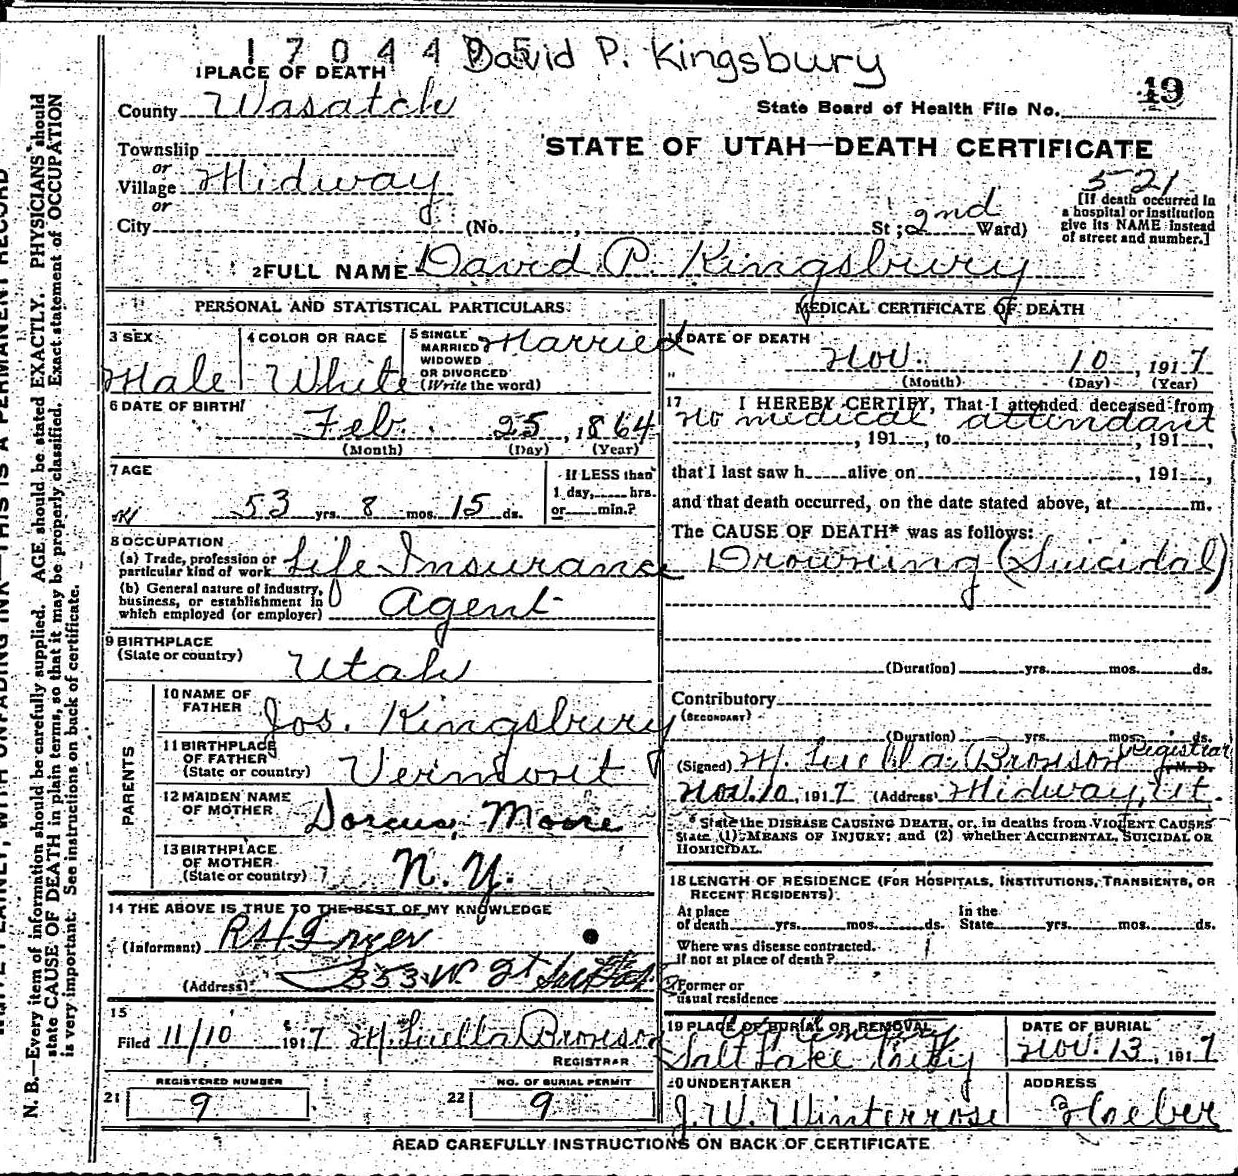 1704495 David P. Kingsbury
1 PLACE OF DEATH
County Wasatch
State Board of Health File No. 49
STATE OF UTAH—DEATH CERTIFICATE
Township
or
Village Midway
or
City (No. , St; 2nd Ward)
521
[If death occurred in
a hospital or institution
give its NAME instead
of street and number.]
2 FULL NAME David P. Kingsbury
PERSONAL AND STATISTICAL PARTICULARS
3 SEX Male
4 COLOR OR RACE White
5 SINGLE
MARRIED
WIDOWED
OR DIVORCED
(Write the word)
Married
6 DATE OF BIRTH
Feb. 25, 1864
(Month) (Day) (Year)
7 AGE
53 yrs. 8 mos. 15 ds.
If LESS than
1 day, hrs.
or min.?
8 OCCUPATION
(a) Trade, profession or
particular kind of work Life Insurance
(b) General nature of industry,
business, or establishment in
which employed (or employer) Agent
9 BIRTHPLACE
(State or country) Utah
PARENTS
10 NAME OF
FATHER Jos. Kingsbury
11 BIRTHPLACE
OF FATHER
(State or country) Vermont
12 MAIDEN NAME
OF MOTHER Dorcus Moore
13 BIRTHPLACE
OF MOTHER
(State or country) N. Y.
14 THE ABOVE IS TRUE TO THE BEST OF MY KNOWLEDGE
(Informant)
(Address) 353 W.
15
Filed 11/10 1917 M. Luella Bronson
REGISTRAR
REGISTERED NUMBER
21 9
NO. OF BURIAL PERMIT
22 9
MEDICAL CERTIFICATE OF DEATH
16 DATE OF DEATH
Nov. 10, 1917
(Month) (Day) (Year)
17 I HEREBY CERTIFY, That I attended deceased from
No medical attendant
, 191 , to , 191 ,
that I last saw h alive on , 191 ,
and that death occurred, on the date stated above, at m.
The CAUSE OF DEATH* was as follows:
Drowning (Suicidal)
(Duration) yrs. mos. ds.
Contributory
(SECONDARY)
(Duration) yrs. mos. ds.
(Signed) M. Luella Bronson Registrar
M. D.
Nov. 10, 1917 (Address) Midway, Ut.
* State the DISEASE CAUSING DEATH, or, in deaths from VIOLENT CAUSES
state (1) MEANS OF INJURY; and (2) whether ACCIDENTAL, SUICIDAL OR
HOMICIDAL.
18 LENGTH OF RESIDENCE (FOR HOSPITALS, INSTITUTIONS, TRANSIENTS, OR
RECENT RESIDENTS)
At place
of death yrs. mos. ds.
In the
State yrs. mos. ds.
Where was disease contracted.
if not at place of death?
Former or
usual residence
19 PLACE OF BURIAL OR REMOVAL
Salt Lake City
DATE OF BURIAL
Nov. 13, 1917
20 UNDERTAKER
J. W. Winterrose
ADDRESS
Heber
READ CAREFULLY INSTRUCTIONS ON BACK OF CERTIFICATE
WRITE PLAINLY, WITH UNFADING INK—THIS IS A PERMANENT RECORD
N. B.—Every item of information should be carefully supplied. AGE should be stated EXACTLY. PHYSICIANS should
state CAUSE OF DEATH in plain terms, so that it may be properly classified. Exact statement of OCCUPATION
is very important. See instructions on back of certificate.